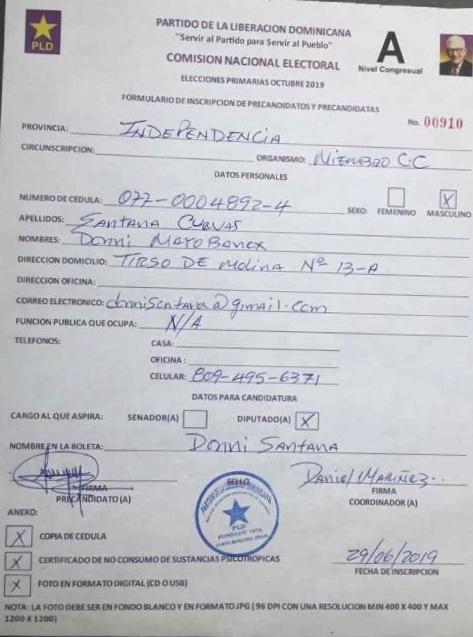 PARTIDO DE LA LIBERACION DOMINICANA
"Servir al Partido para Servir al Pueblo"
COMISION NACIONAL ELECTORAL
PLD
A
Nivel Congresual
ELECCIONES PRIMARIAS OCTUBRE 2019
FORMULARIO DE INSCRIPCION DE PRECANDIDATOS Y PRECANDIDATAS
No. 00910
PROVINCIA: INDEPENDENCIA
CIRCUNSCRIPCION: ORGANISMO: MIEMBRO C.C
DATOS PERSONALES
NUMERO DE CEDULA: 077-0004892-4 SEXO: FEMENINO MASCULINO X
APELLIDOS: Santana Cuevas
NOMBRES: Donni
DIRECCION DOMICILIO: TIRSO DE Molina Nº 13-A
DIRECCION OFICINA:
CORREO ELECTRONICO: donnisantana@gmail.com
FUNCION PUBLICA QUE OCUPA: N/A
TELEFONOS: CASA:
OFICINA :
CELULAR: 809-495-6371
DATOS PARA CANDIDATURA
CARGO AL QUE ASPIRA: SENADOR(A) DIPUTADO(A) X
NOMBRE EN LA BOLETA: Donni Santana
Daniel Mariñez
FIRMA SELLO FIRMA
PRECANDIDATO(A) COORDINADOR(A)
PARTIDO DE LA LIBERACION DOMINICANA
PLD
ANEXO:
X COPIA DE CEDULA
X CERTIFICADO DE NO CONSUMO DE SUSTANCIAS PSICOTROPICAS
29/06/2019
FECHA DE INSCRIPCION
X FOTO EN FORMATO DIGITAL (CD O USB)
NOTA: LA FOTO DEBE SER EN FONDO BLANCO Y EN FORMATO JPG ( 96 DPI CON UNA RESOLUCION MIN 400 X 400 Y MAX
1200 X 1200)